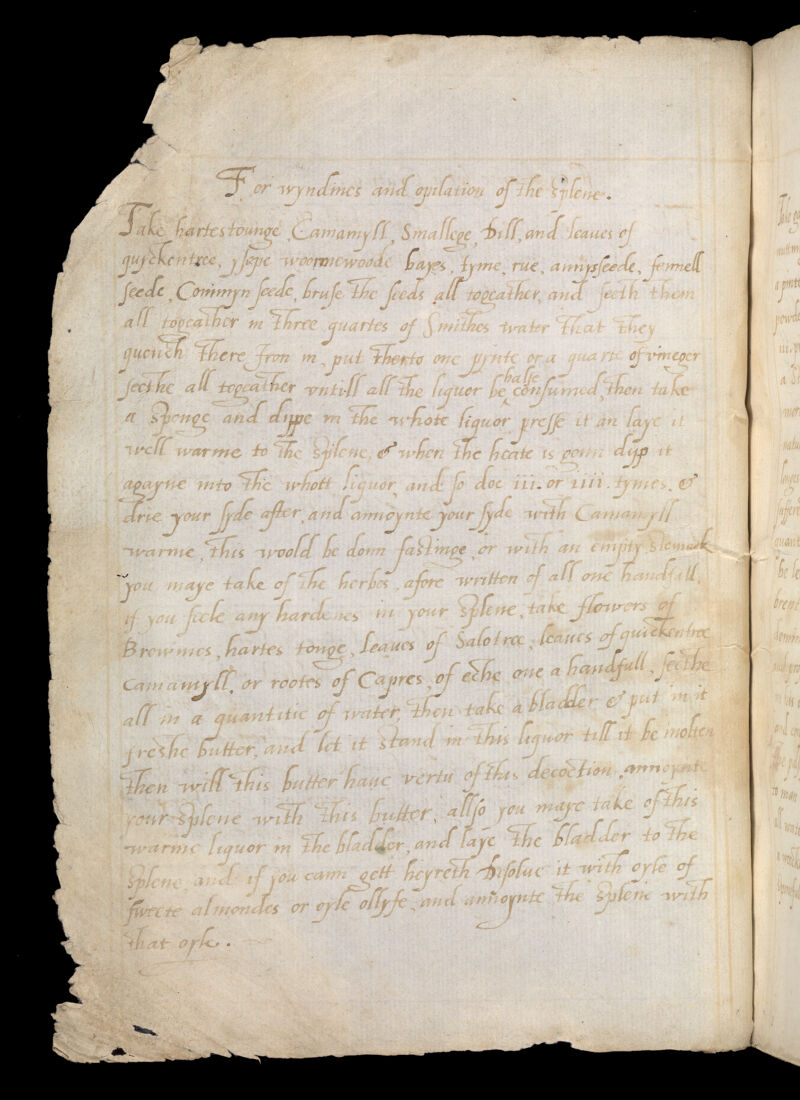 For wyndines and opilation of the splene.
Take hartestounge, Camamyll, Smallege, Dill, and leaves of
quyckentree, ysope woormewoode bayes, tyme, rue, annysseede, fennell
seede, Commyn seede, bruse the seeds all togeather, and seeth them
all togeather in three quartes of Smithes water that they
quench there Iron in, put therto one pynte or a quarte of vineger
seethe all togeather vntill all the liquor be halfe consumed, then take
a sponge and dippe in the whote liquor presse it an laye it
well warme to the splene, & when the heate is gonn dyp it
agayne into the whott liquor, and so doe iii. or iiii. tymes. &
drie your syde after, and annoynte your syde with Camamyll
warme, this woold be donn fastinge, or with an empty stomack
you maye take of the herbes, afore written of all one handfull.
if you feele any hardenes in your splene, take flowers of
Browmes, hartes tonge, leaves of Salotree, leaves of quickentree
Camamyll, or rootes of Capres, of eche one a handfull, seethe
all in a quantitie of water, then take a bladder & put in it
freshe butter, and let it stand in this liquor till it be molten
then will this butter haue vertu of this decoction, annoynte
your splene with this butter, allso you maye take of this
warme liquor in the bladder, and laye the bladder to the
splene, and if you cann gett heyreth disolue it with oyle of
sweete almondes or oyle ollyfe, and annoynte the splene with
that oyle.